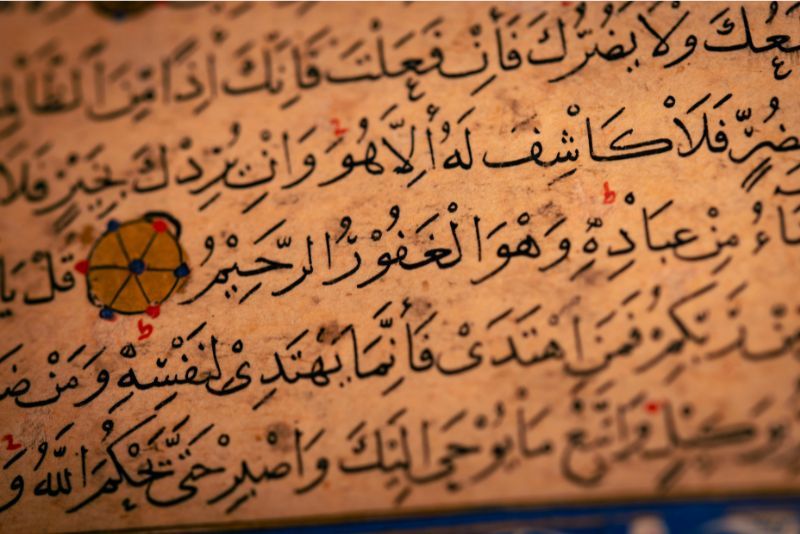 وَلَا يَضُرُّكَ فَأِنْ فَعَلْتَ فَاِنَّكَ اِذًا مِنَ الظَّالِمِ
بِضُرٍّ فَلَا كَاشِفَ لَهُ أِلَّا هُوَ وَاِنْ يُرِدْكَ بِخَيْرٍ فَلَا
اءُ مِنْ عِبَادِهِ وَهْوَ الْغَفُوْرُ الرَّحِيْمُ قُلْ يَا
مِنْ رَبِّكُمْ فَمَنِ اهْتَدَىْ فَأِنَّمَا يَهْتَدِىْ لِنَفْسِهِ وَمَنْ ضَ
بِوَكِيْلٍ وَاتَّبِعْ مَا يُوْحَىْ اِلَيْكَ وَاصْبِرْ حَتَّىْ يَحْكُمَ اللّٰهُ وَ